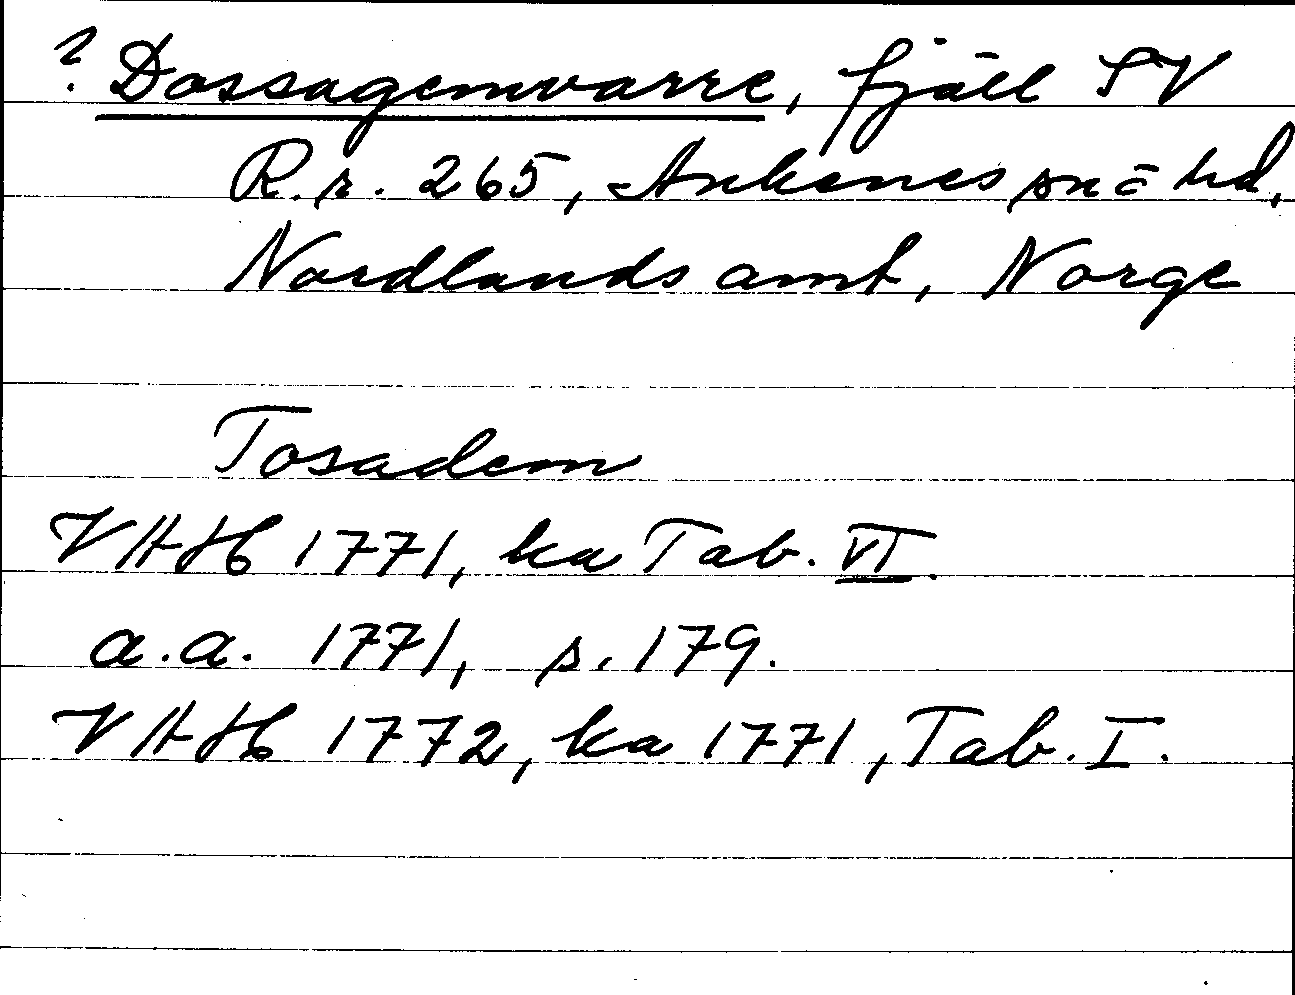 ? Dossagemvarre, fjäll SV
R.r. 265, Ankenes sn = hd,
Nordlands amt, Norge
Tosadem
VHAH 1771, ka Tab. VI.
a.a. 1771, s. 179.
VHAH 1772, ka 1771, Tab. I.